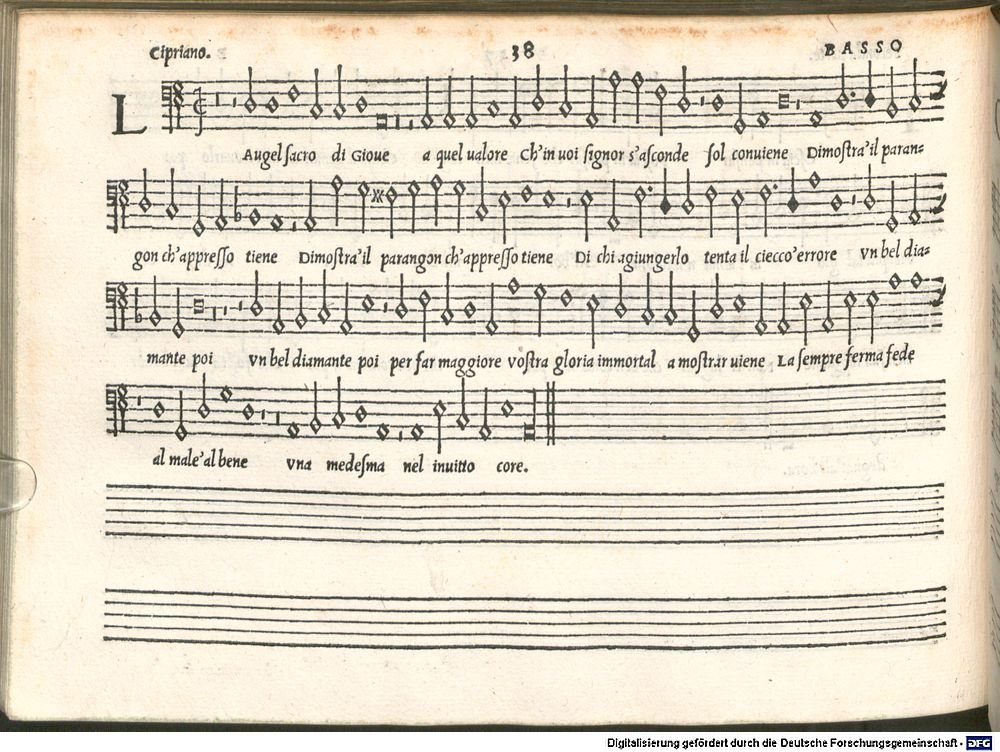 Cipriano. 38 BASSO
L
Augel sacro di Gioue a quel ualore Ch'in uoi signor s'asconde sol conuiene Dimostra'il paran=
gon ch'appresso tiene Dimostra'il paragon ch'appresso tiene Di chi agiungerlo tenta il ciecco'errore Vn bel dia-
mante poi vn bel diamante poi per far maggiore vostra gloria immortal a mostrar uiene La sempre ferma fede
al male'al bene vna medesma nel inuitto core.
Digitalisierung gefördert durch die Deutsche Forschungsgemeinschaft - DFG